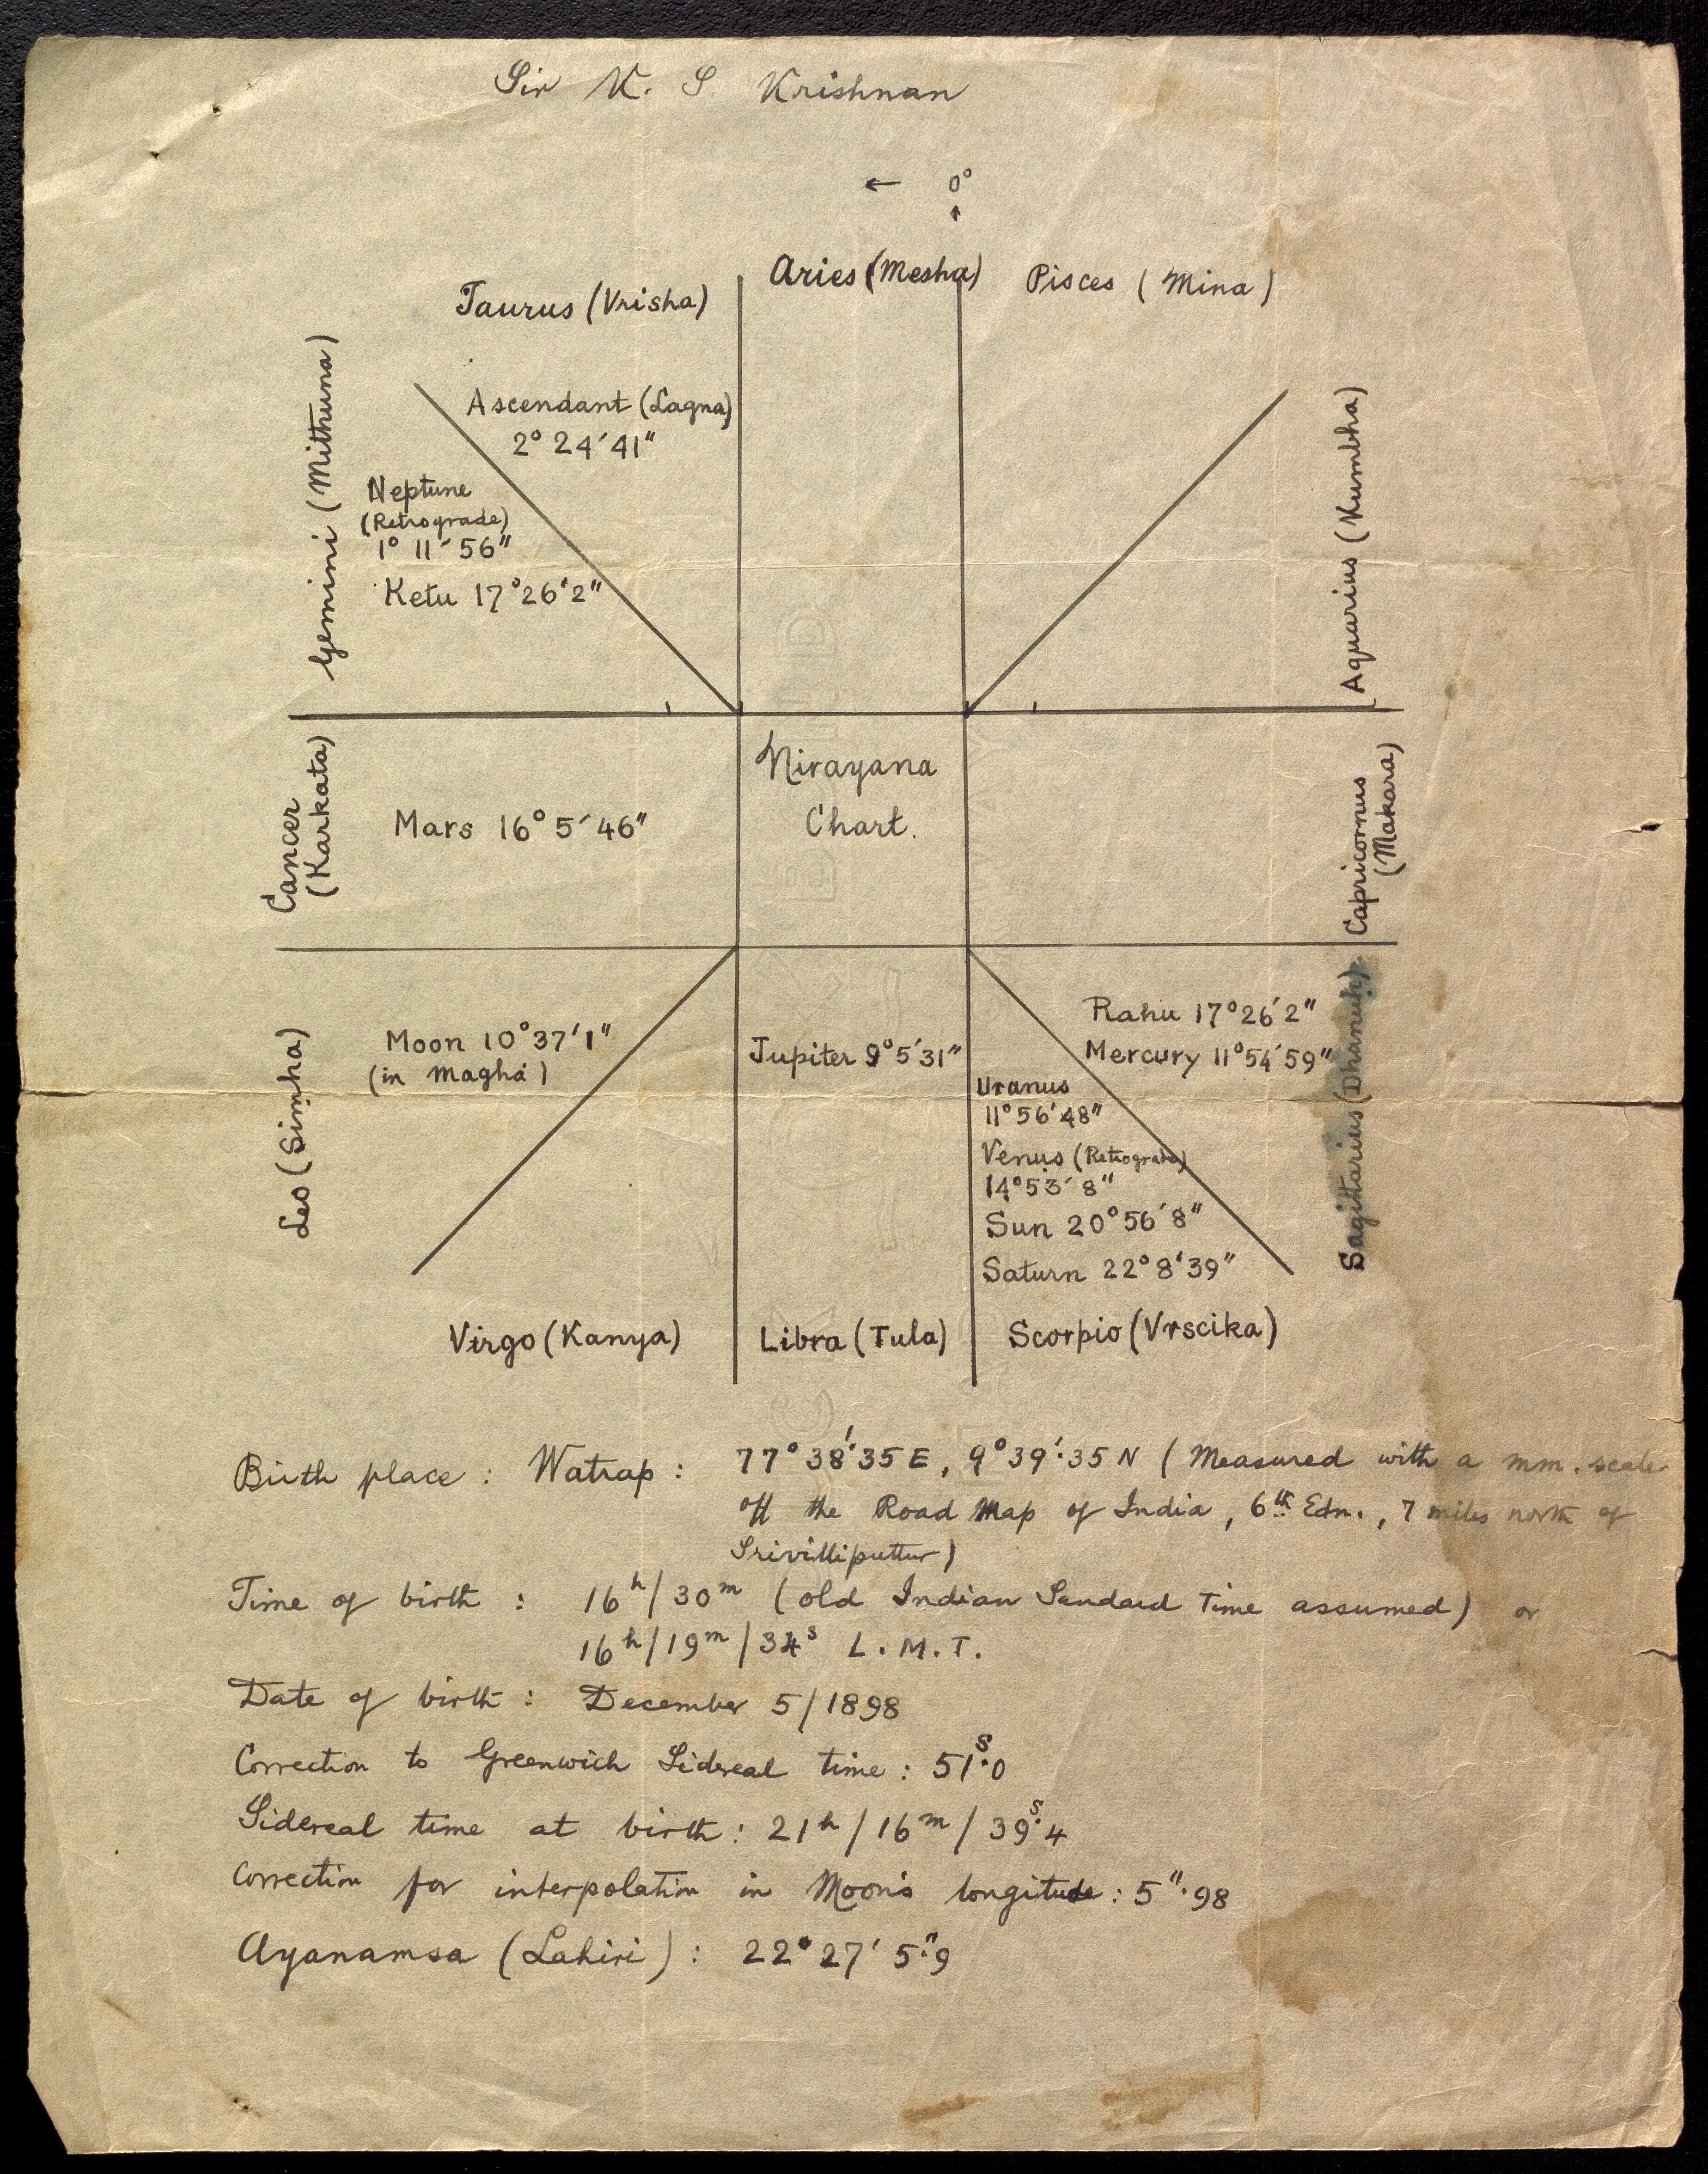 Sir K. S. Krishnan
← 0°
↑
Aries (Mesha)
Pisces (Mina)
Taurus (Vrisha)
Ascendant (Lagna)
2° 24′ 41″
Gemini (Mithuna)
Neptune
(Retrograde)
1° 11′ 56″
Ketu 17° 26′ 2″
Aquarius (Kumbha)
Cancer
(Karkata)
Mars 16° 5′ 46″
Nirayana
Chart.
Capricornus
(Makara)
Leo (Simha)
Moon 10° 37′ 1″
(in Magha)
Jupiter 9° 5′ 31″
Rahu 17° 26′ 2″
Mercury 11° 54′ 59″
Sagittarius (Dhanuh)
Uranus
11° 56′ 48″
Venus (Retrograde)
14° 53′ 8″
Sun 20° 56′ 8″
Saturn 22° 8′ 39″
Virgo (Kanya)
Libra (Tula)
Scorpio (Vrscika)
Birth place : Watrap : 77° 38′.35 E, 9° 39′.35 N (Measured with a mm. scale
off the Road Map of India, 6th Edn., 7 miles north of
Srivilliputtur)
Time of birth : 16h/30m (old Indian Sandard Time assumed) or
16h/19m/34s L.M.T.
Date of birth : December 5/1898
Correction to Greenwich Sidereal time : 51s.0
Sidereal time at birth : 21h/16m/39s.4
Correction for interpolation in Moon's longitude : 5″.98
Ayanamsa (Lahiri) : 22° 27′ 5″.9